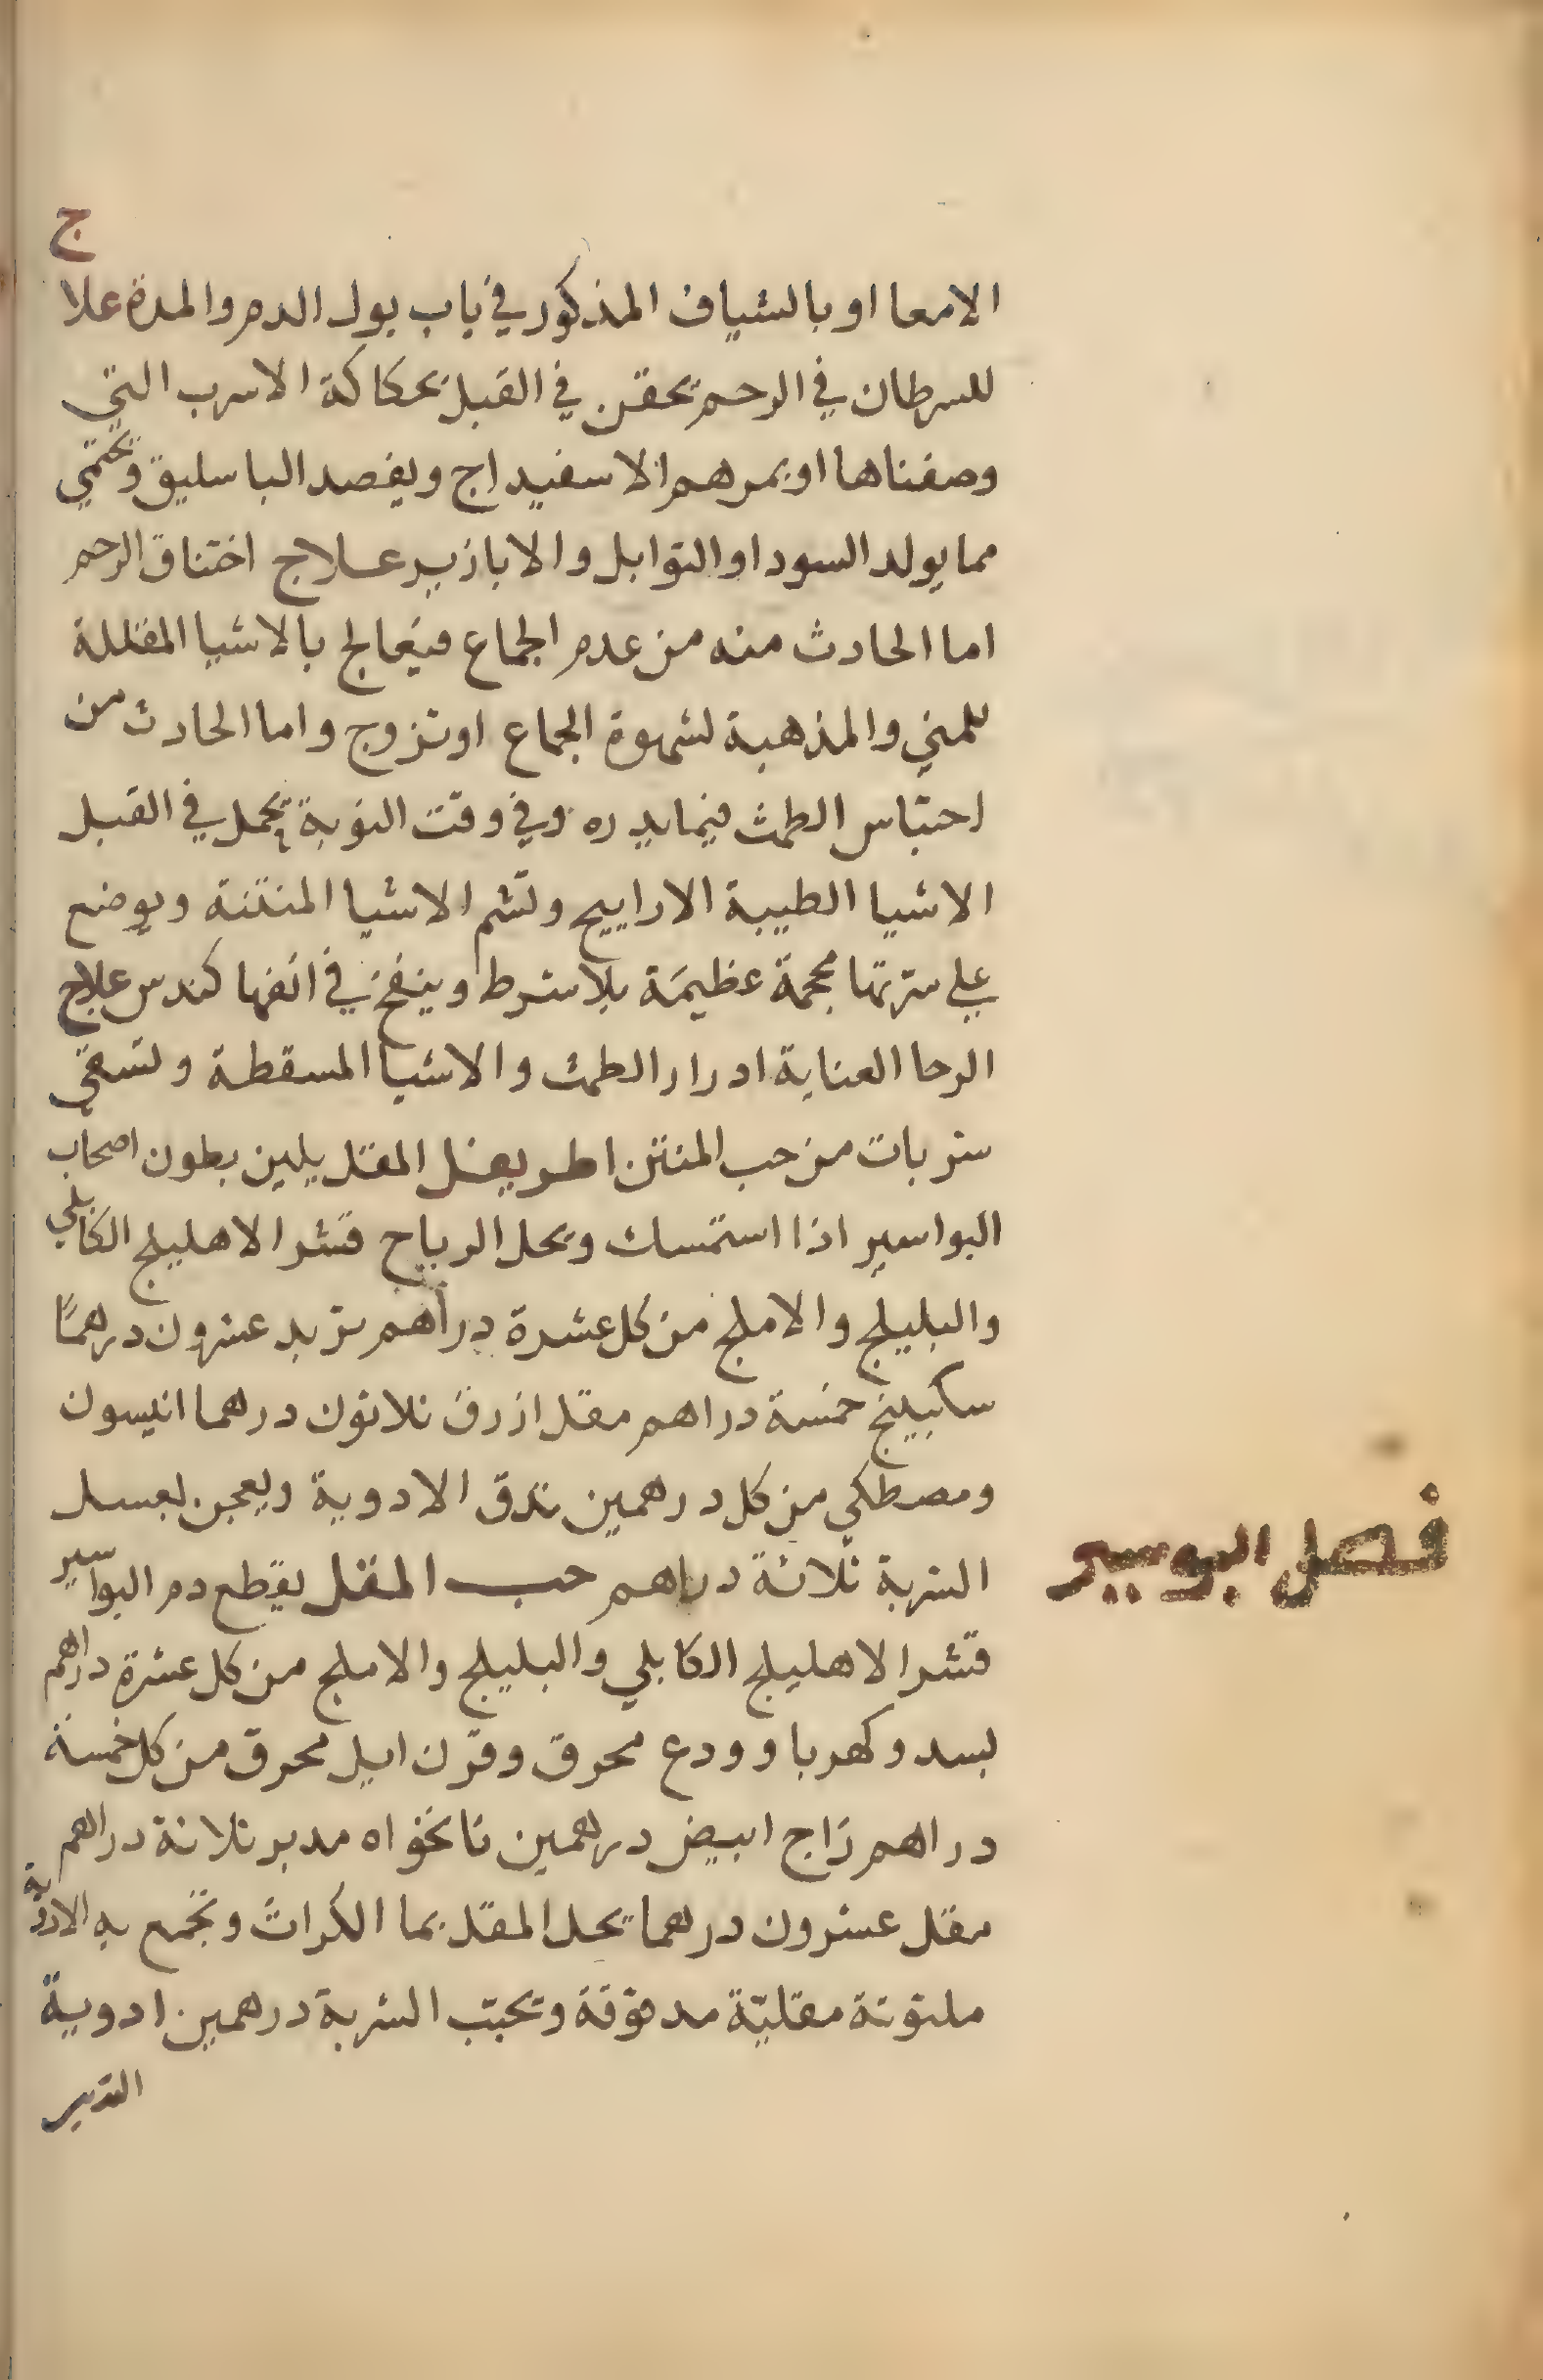 الامعا او بالشياف المذكور في باب بول الدم والمدة علاج
للسرطان في الرحم تحقن في القبل بحكاكة الاسرب التي
وصفناها او بمرهم الاسفيداج ويفصد الباسليق وتحتمي
مما يولد السودا والتوابل والابازير عـلاج اختناق الرحم
اما الحادث منه من عدم الجماع فيعالج بالاشيا المقللة
للمني والمذهبة لشهوة الجماع او تزوج واما الحادث من
احتباس الطمث فيما يدره وفي وقت النوبة تحمل في القبل
الاشيا الطيبة الاراييح وتشم الاشيا المنتنة ويوضع
علي سرتها محجمة عظيمة بلا شرط وينفخ في انفها كندس علاج
الرحا العناية ادرار الطمث والاشيا المسقطة وتسقي
شربات من حب المنتن اطريفل المقل يلين بطون اصحاب
البواسير اذا استمسك ويحل الرياح قشر الاهليلج الكابلي
والبليلج والاملج من كل عشرة دراهم تربد عشرون درهمًا
سكبينج خمسة دراهم مقل ازرق ثلاثون درهما انيسون
ومصطكي من كل درهمين تدق الادوية ويعجن بعسل
الشربة ثلاثة دراهم حب المقل يقطع دم البواسير
فصل ابوسير
قشر الاهليلج الكابلي والبليلج والاملج من كل عشرة دراهم
بسد وكهربا وودع محرق وقرن ايل محرق من كل خمسة
دراهم زاج ابيض درهمين نانخواه مدبر ثلاثة دراهم
مقل عشرون درهما يحل المقل بما الكراث وتجمع به الادوية
ملتوتة مقليّة مدقوقة وتحبّب الشربة درهمين ادوية